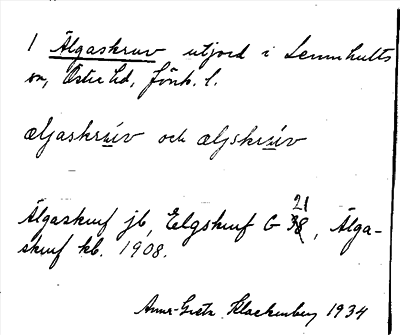 1 Älgaskruv utjord i Lemnhults
sn, Östra hd, Jönk. l.
æljaskrúiv och æljskrúiv
21
Älgaskruf jb, Eelgskruf G 38, Älga-
skruf kb. 1908.
Anna-Greta Klackenberg 1934